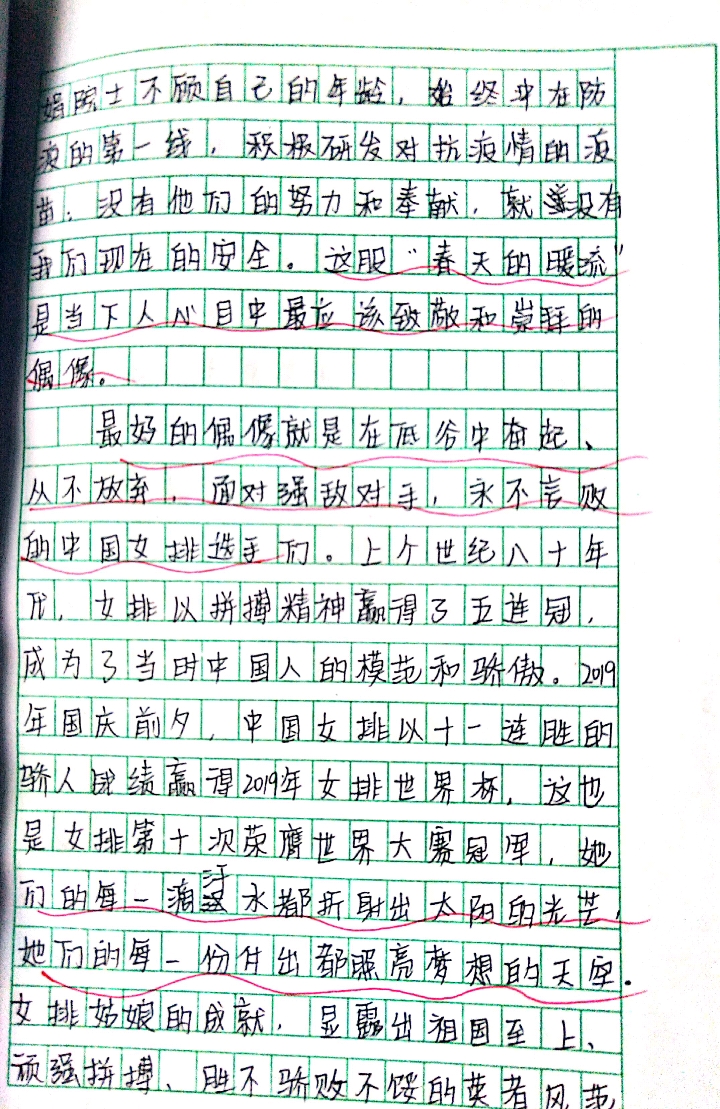 娟院士不顾自己的年龄，始终冲在防
疫的第一线，积极研发对抗疫情的疫
苗，没有他们的努力和奉献，就没有
我们现在的安全。这股“春天的暖流”
是当下人心目中最应该致敬和崇拜的
偶像。
最好的偶像就是在低谷中奋起、
从不放弃，面对强敌对手，永不言败
的中国女排选手们。上个世纪八十年
代，女排以拼搏精神赢得了五连冠，
成为了当时中国人的模范和骄傲。2019
年国庆前夕，中国女排以十一连胜的
骄人战绩赢得2019年女排世界杯，这也
是女排第十次荣膺世界大赛冠军，她
们的每一滴汗水都折射出太阳的光芒，
她们的每一份付出都照亮梦想的天空。
女排姑娘的成就，显露出祖国至上、
顽强拼搏、胜不骄败不馁的英者风范